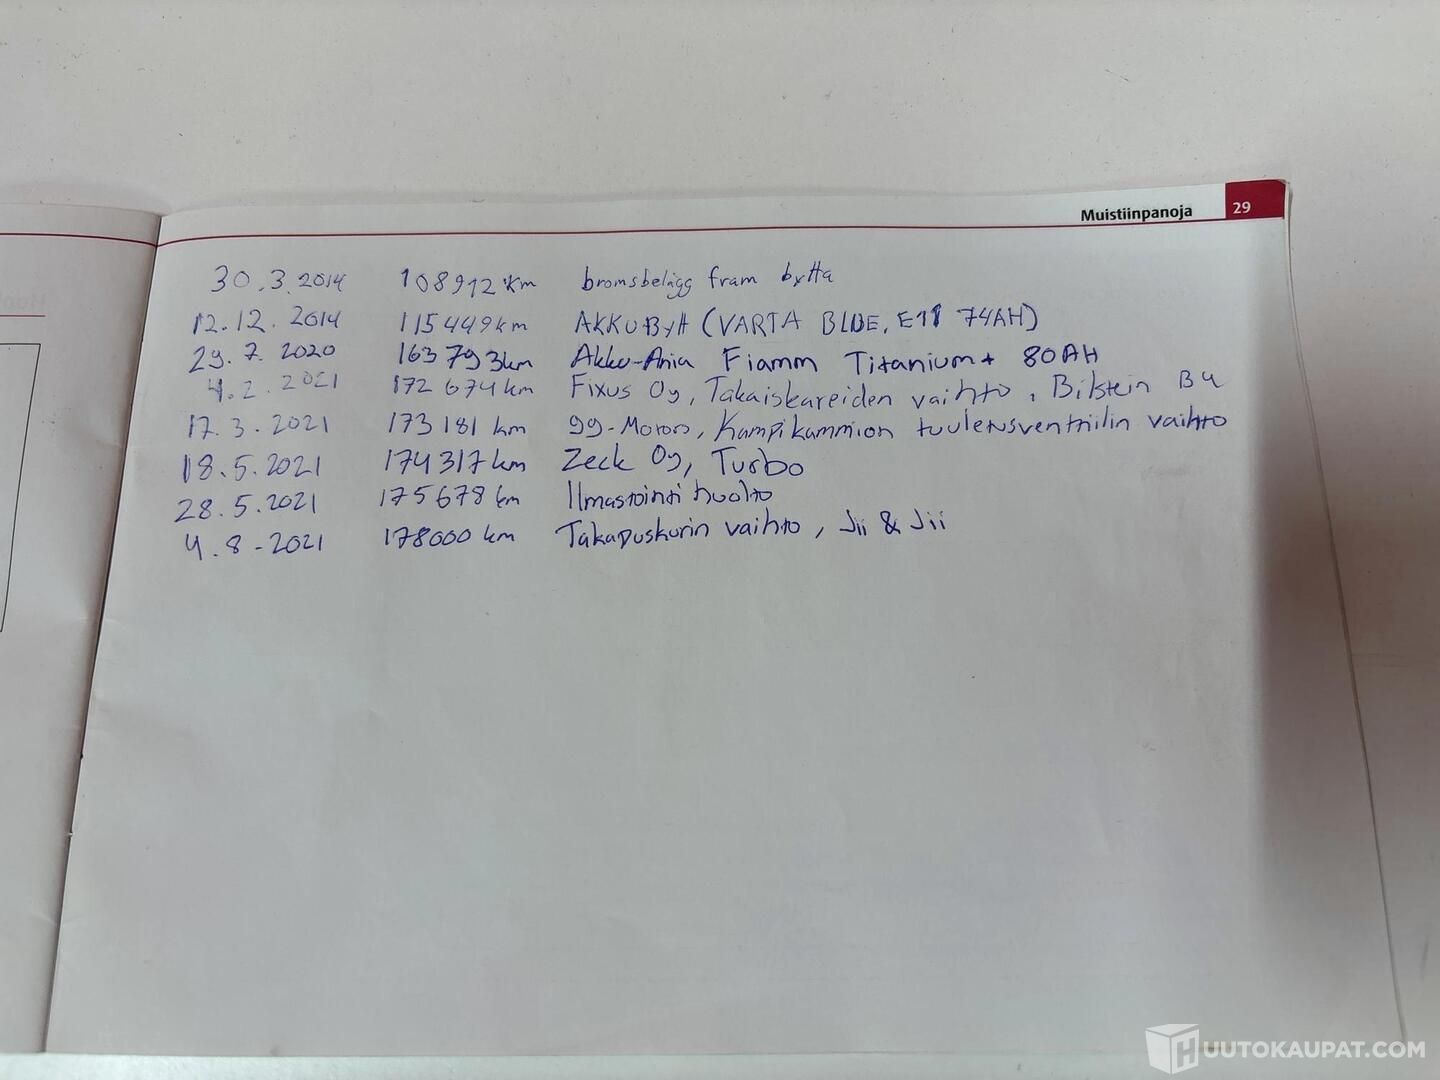 Muistiinpanoja 29
30.3.2014 108912 km bromsbelägg fram bytta
12.12.2014 115449km AKKUBYH (VARTA BLUE, E11 74AH)
29.7.2020 163793km Akku-Ania Fiamm Titanium+ 80AH
4.2.2021 172674km Fixus Oy, Takaiskareiden vaihto, Bilstein B4
17.3.2021 173181 km 99-Motors, Kampikammion tuuletusventtiilin vaihto
18.5.2021 174317km Zeck Oy, Turbo
28.5.2021 175678km Ilmastointi huolto
4.8-2021 178000km Takapuskurin vaihto, Jii & Jii
HUUTOKAUPAT.COM